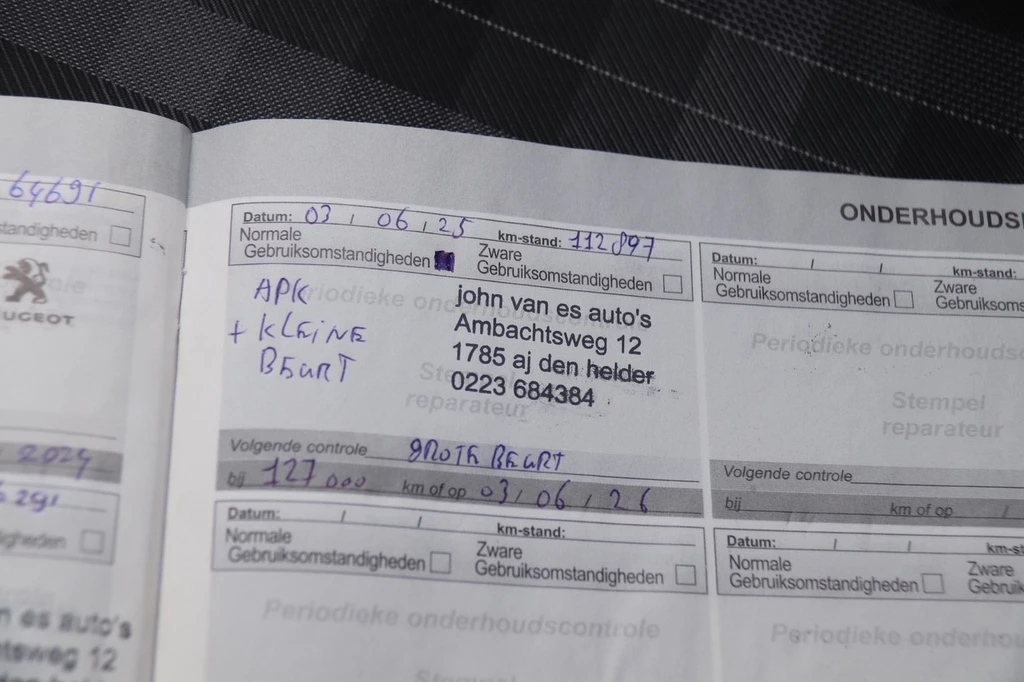 64691
standigheden
PEUGEOT
2024
291
gheden
es auto's
tsweg 12
ONDERHOUDS
Datum: 03 / 06 / 25 km-stand: 112897
Normale
Gebruiksomstandigheden
Zware
Gebruiksomstandigheden
APK
+ KLEINE
BEURT
Periodieke onderhoudscontrole
Stempel
reparateur
john van es auto's
Ambachtsweg 12
1785 aj den helder
0223 684384
Volgende controle GROTE BEURT
bij 127000 km of op 03 / 06 / 26
Datum: / / km-stand:
Normale
Gebruiksomstandigheden
Zware
Gebruiksomstandigheden
Periodieke onderhoudsc
Stempel
reparateur
Volgende controle
bij km of op /
Datum: / / km-stand:
Normale
Gebruiksomstandigheden
Zware
Gebruiksomstandigheden
Periodieke onderhoudscontrole
Stempel
Datum: / / km-st
Normale
Gebruiksomstandigheden
Zware
Gebruik
Periodieke onderhou